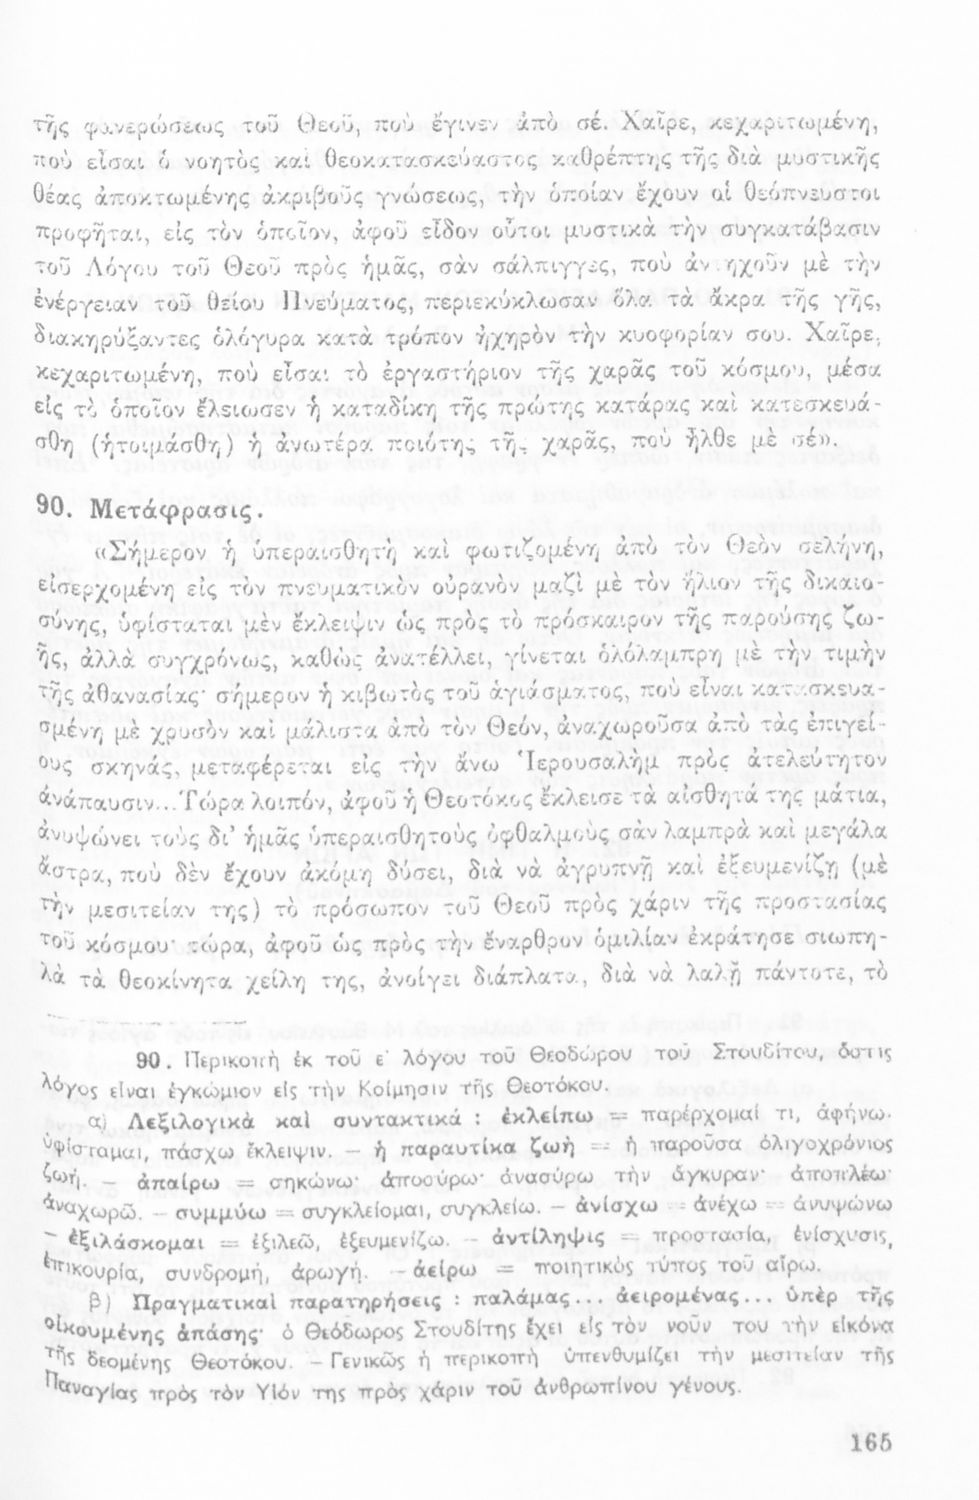 τῆς φανερώσεως τοῦ Θεοῦ, ποὺ ἔγινεν ἀπὸ σέ. Χαῖρε, κεχαριτωμένη,
ποὺ εἶσαι ὁ νοητὸς καὶ θεοκατασκεύαστος καθρέπτης τῆς διὰ μυστικῆς
θέας ἀποκτωμένης ἀκριβοῦς γνώσεως, τὴν ὁποίαν ἔχουν οἱ θεόπνευστοι
προφῆται, εἰς τὸν ὁποῖον, ἀφοῦ εἶδον οὗτοι μυστικὰ τὴν συγκατάβασιν
τοῦ Λόγου τοῦ Θεοῦ πρὸς ἡμᾶς, σὰν σάλπιγγες, ποὺ ἀντηχοῦν μὲ τὴν
ἐνέργειαν τοῦ θείου Πνεύματος, περιεκύκλωσαν ὅλα τὰ ἄκρα τῆς γῆς,
διακηρύξαντες ὁλόγυρα κατὰ τρόπον ἠχηρὸν τὴν κυοφορίαν σου. Χαῖρε,
κεχαριτωμένη, ποὺ εἶσαι τὸ ἐργαστήριον τῆς χαρᾶς τοῦ κόσμου, μέσα
εἰς τὸ ὁποῖον ἔλειωσεν ἡ καταδίκη τῆς πρώτης κατάρας καὶ κατεσκευά-
σθη (ἡτοιμάσθη) ἡ ἀνωτέρα ποιότης τῆς χαρᾶς, ποὺ ἦλθε μὲ σέ».
90. Μετάφρασις.
«Σήμερον ἡ ὑπεραισθητὴ καὶ φωτιζομένη ἀπὸ τὸν Θεὸν σελήνη,
εἰσερχομένη εἰς τὸν πνευματικὸν οὐρανὸν μαζὶ μὲ τὸν ἥλιον τῆς δικαιο-
σύνης, ὑφίσταται μὲν ἔκλειψιν ὡς πρὸς τὸ πρόσκαιρον τῆς παρούσης ζω-
ῆς, ἀλλὰ συγχρόνως, καθὼς ἀνατέλλει, γίνεται ὁλόλαμπρη μὲ τὴν τιμὴν
τῆς ἀθανασίας· σήμερον ἡ κιβωτὸς τοῦ ἁγιάσματος, ποὺ εἶναι κατασκευα-
σμένη μὲ χρυσὸν καὶ μάλιστα ἀπὸ τὸν Θεόν, ἀναχωροῦσα ἀπὸ τὰς ἐπιγεί-
ους σκηνάς, μεταφέρεται εἰς τὴν ἄνω Ἱερουσαλὴμ πρὸς ἀτελεύτητον
ἀνάπαυσιν...Τώρα λοιπόν, ἀφοῦ ἡ Θεοτόκος ἔκλεισε τὰ αἰσθητά της μάτια,
ἀνυψώνει τοὺς δι' ἡμᾶς ὑπεραισθητοὺς ὀφθαλμοὺς σὰν λαμπρὰ καὶ μεγάλα
ἄστρα, ποὺ δὲν ἔχουν ἀκόμη δύσει, διὰ νὰ ἀγρυπνῇ καὶ ἐξευμενίζῃ (μὲ
τὴν μεσιτείαν της) τὸ πρόσωπον τοῦ Θεοῦ πρὸς χάριν τῆς προστασίας
τοῦ κόσμου· τώρα, ἀφοῦ ὡς πρὸς τὴν ἔναρθρον ὁμιλίαν ἐκράτησε σιωπη-
λὰ τὰ θεοκίνητα χείλη της, ἀνοίγει διάπλατα, διὰ νὰ λαλῇ πάντοτε, τὸ
90. Περικοπὴ ἐκ τοῦ ε' λόγου τοῦ Θεοδώρου τοῦ Στουδίτου, ὅστις
λόγος εἶναι ἐγκώμιον εἰς τὴν Κοίμησιν τῆς Θεοτόκου.
α) Λεξιλογικὰ καὶ συντακτικά : ἐκλείπω = παρέρχομαί τι, ἀφήνω·
ὑφίσταμαι, πάσχω ἔκλειψιν. – ἡ παραυτίκα ζωὴ = ἡ παροῦσα ὀλιγοχρόνιος
ζωή. – ἀπαίρω = σηκώνω· ἀποσύρω· ἀνασύρω τὴν ἄγκυραν· ἀποπλέω·
ἀναχωρῶ. – συμμύω = συγκλείομαι, συγκλείω. – ἀνίσχω = ἀνέχω = ἀνυψώνω
– ἐξιλάσκομαι = ἐξιλεῶ, ἐξευμενίζω. – ἀντίληψις = προστασία, ἐνίσχυσις,
ἐπικουρία, συνδρομή, ἀρωγή. – ἀείρω = ποιητικὸς τύπος τοῦ αἴρω.
β) Πραγματικαὶ παρατηρήσεις : παλάμας... ἀειρομένας... ὑπὲρ τῆς
οἰκουμένης ἁπάσης· ὁ Θεόδωρος Στουδίτης ἔχει εἰς τὸν νοῦν του τὴν εἰκόνα
τῆς δεομένης Θεοτόκου. – Γενικῶς ἡ περικοπὴ ὑπενθυμίζει τὴν μεσιτείαν τῆς
Παναγίας πρὸς τὸν Υἱόν της πρὸς χάριν τοῦ ἀνθρωπίνου γένους.
165